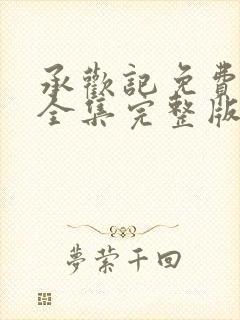 承歡記免費
全集完整版
夢縈千回